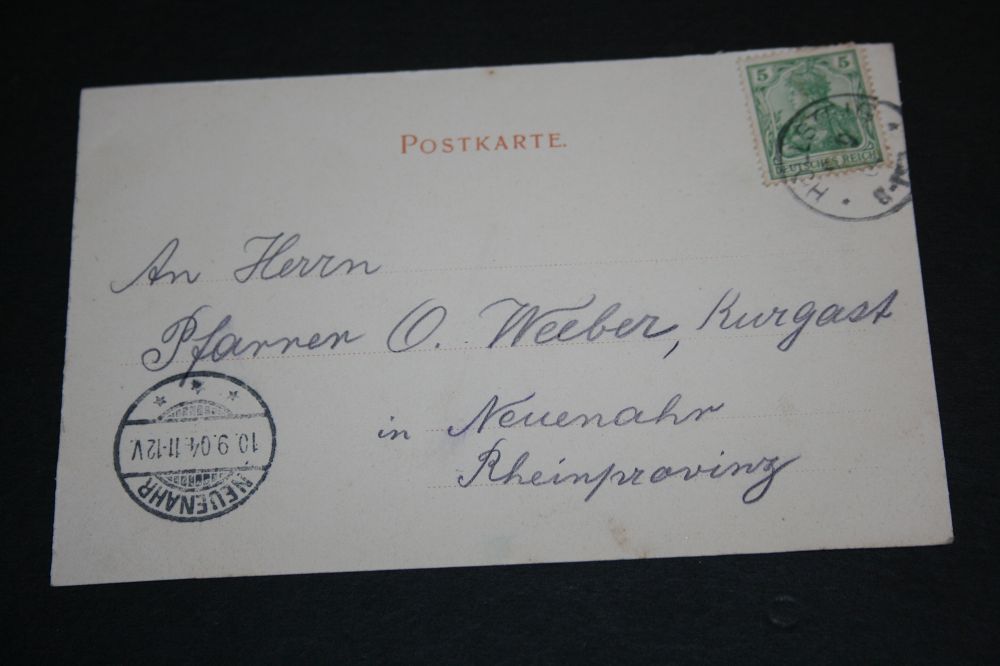 5 5
DEUTSCHES REICH
POSTKARTE.
An Herrn
Pfarrer O. Weeber, Kurgast
in Neuenahr
Rheinprovinz
10.9.04.11-12V.
NEUENAHR